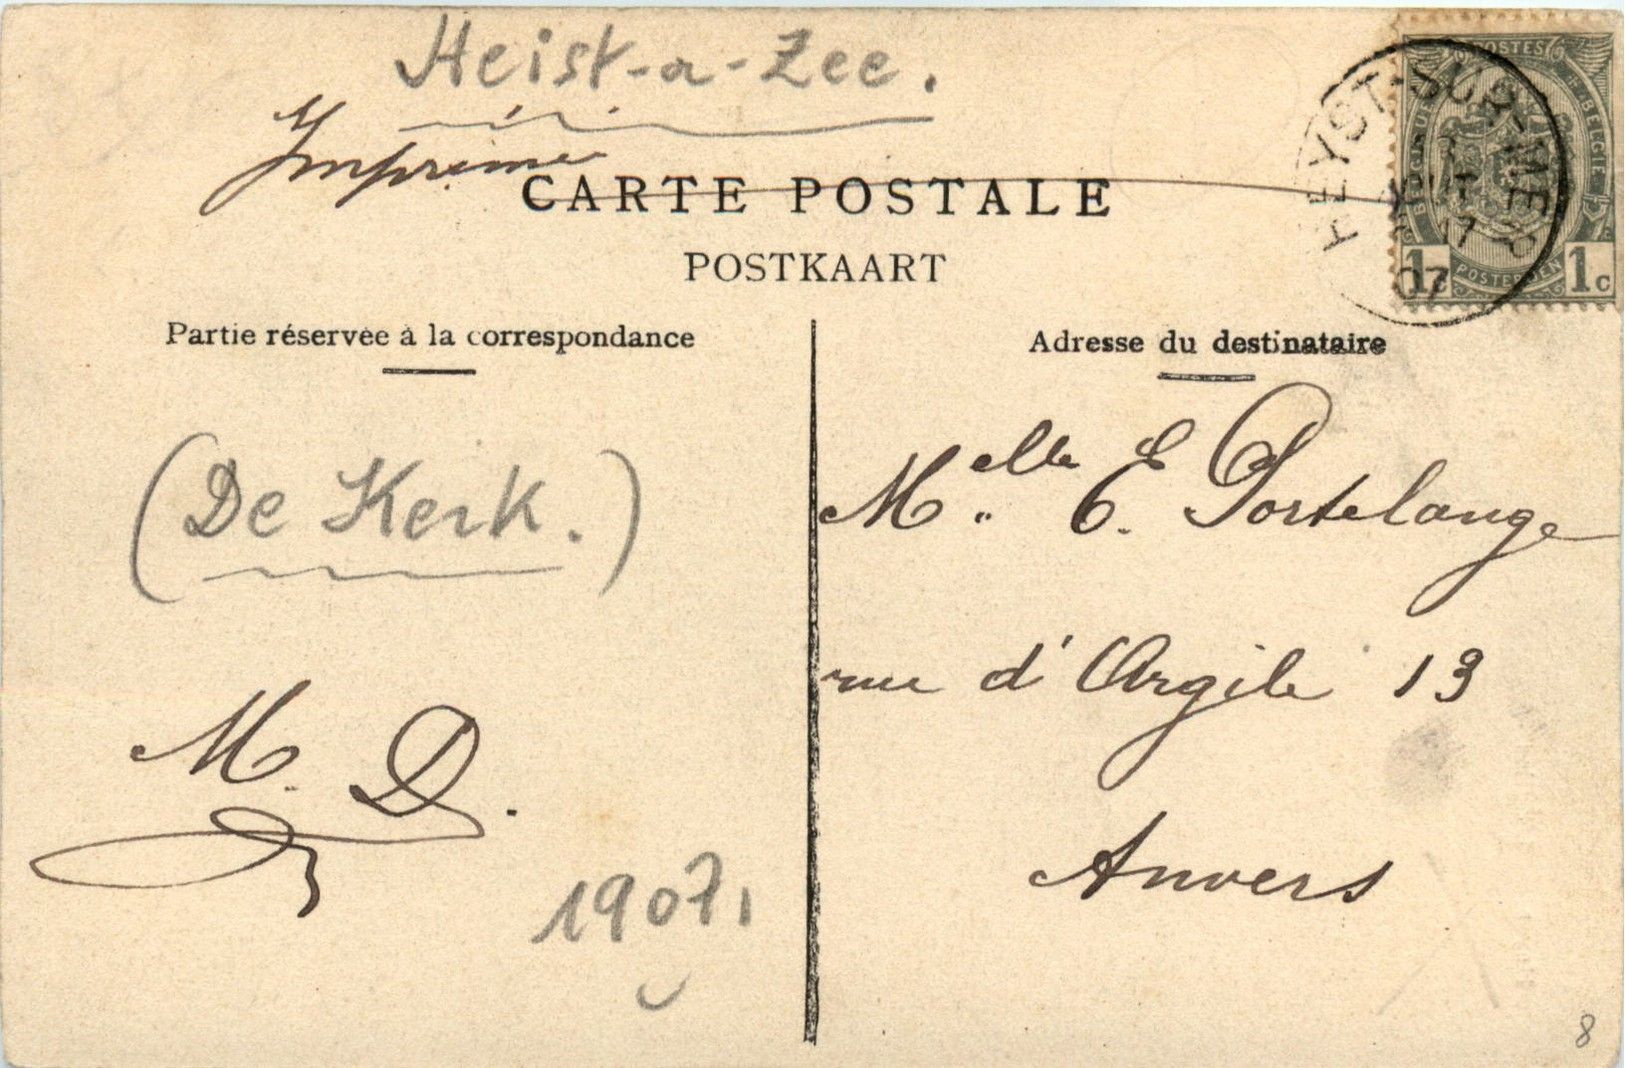 Heist-a-Zee.
Imprimé
CARTE POSTALE
POSTKAART
HEYST-SUR-MER
07
POSTES
BELGIE
POSTERIJEN
1c 1c
Partie réservée à la correspondance
(De Kerk.)
M. D.
1907.
Adresse du destinataire
Melle E. Portelange
rue d'Argile 13
Anvers
8